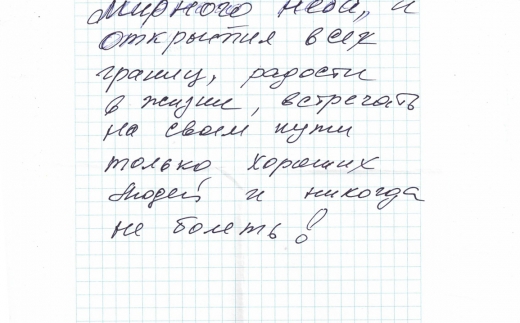 мирного неба, и
открытия всех
границ, радости
в жизни, встречать
на своем пути
только хороших
людей и никогда
не болеть!